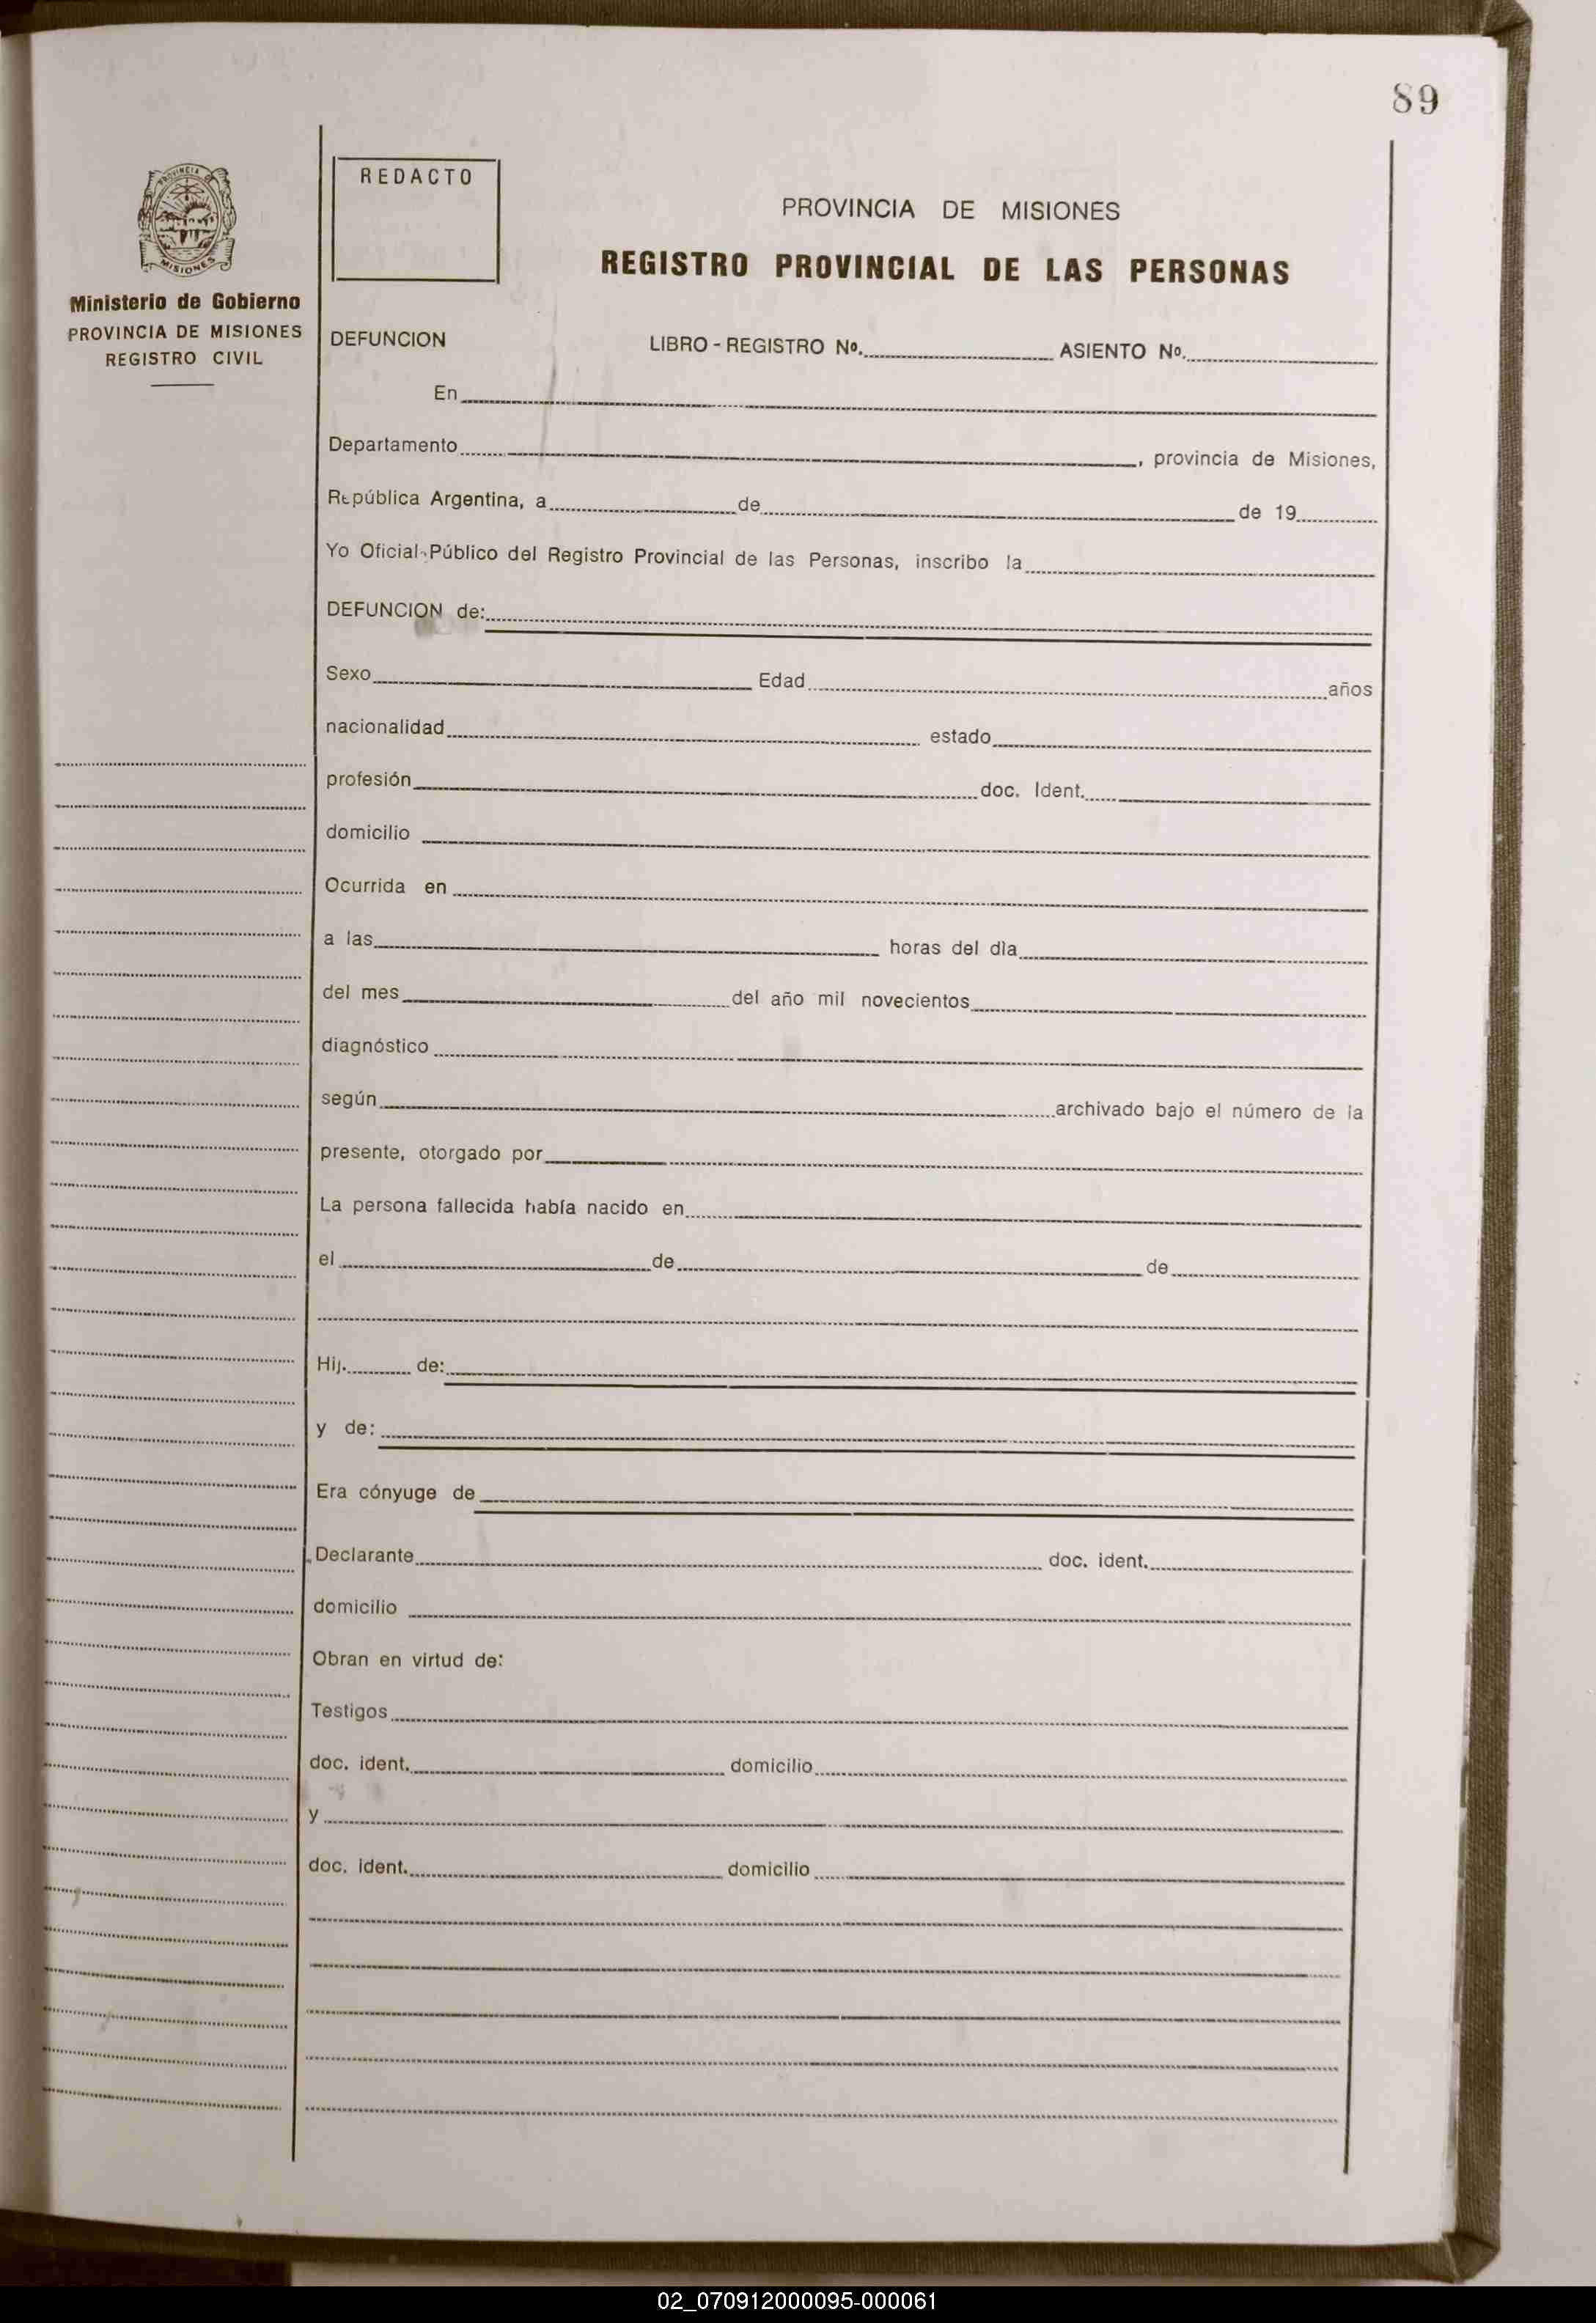 89
PROVINCIA DE
MISIONES
Ministerio de Gobierno
PROVINCIA DE MISIONES
REGISTRO CIVIL
REDACTO
PROVINCIA DE MISIONES
REGISTRO PROVINCIAL DE LAS PERSONAS
DEFUNCION LIBRO - REGISTRO Nº. ASIENTO Nº.
En
Departamento , provincia de Misiones,
República Argentina, a de de 19
Yo Oficial Público del Registro Provincial de las Personas, inscribo la
DEFUNCION de:
Sexo Edad años
nacionalidad estado
profesión doc. Ident.
domicilio
Ocurrida en
a las horas del día
del mes del año mil novecientos
diagnóstico
según archivado bajo el número de la
presente, otorgado por
La persona fallecida había nacido en
el de de
Hij. de:
y de:
Era cónyuge de
Declarante doc. ident.
domicilio
Obran en virtud de:
Testigos
doc. ident. domicilio
y
doc. ident. domicilio
02_070912000095-000061